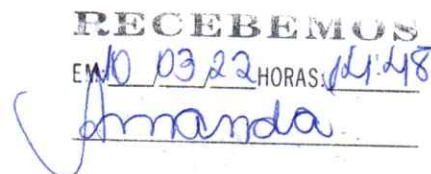 RECEBEMOS
EM 10/03/22 HORAS: 14:48
Amanda